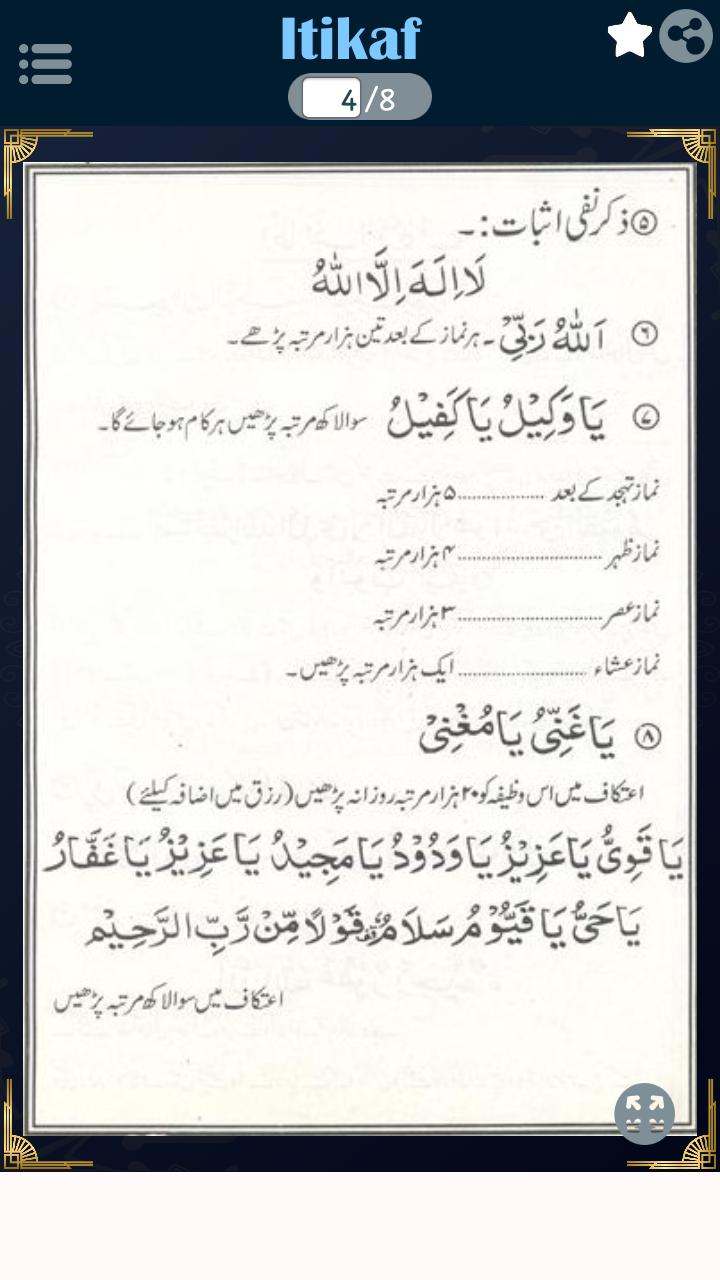 Itikaf
4/8
۵ ذکر نفی اثبات:۔
لَا اِلٰهَ اِلَّا اللّٰهُ
۶ اَللّٰهُ رَبِّیْ۔ ہر نماز کے بعد تین ہزار مرتبہ پڑھے۔
۷ یَا وَکِیْلُ یَا کَفِیْلُ سوا لاکھ مرتبہ پڑھیں ہر کام ہو جائے گا۔
نماز تہجد کے بعد ................ ۵ ہزار مرتبہ
نماز ظہر ................ ۴ ہزار مرتبہ
نماز عصر ................ ۳ ہزار مرتبہ
نماز عشاء ................ ایک ہزار مرتبہ پڑھیں۔
۸ یَا غَنِیُّ یَا مُغْنِیْ
اعتکاف میں اس وظیفہ کو ۲۰ ہزار مرتبہ روزانہ پڑھیں (رزق میں اضافہ کیلئے)
یَا قَوِیُّ یَا عَزِیْزُ یَا وَدُوْدُ یَا مَجِیْدُ یَا عَزِیْزُ یَا غَفَّارُ
یَا حَیُّ یَا قَیُّوْمُ سَلَامٌ قَوْلًا مِّنْ رَّبِّ الرَّحِیْم
اعتکاف میں سوا لاکھ مرتبہ پڑھیں